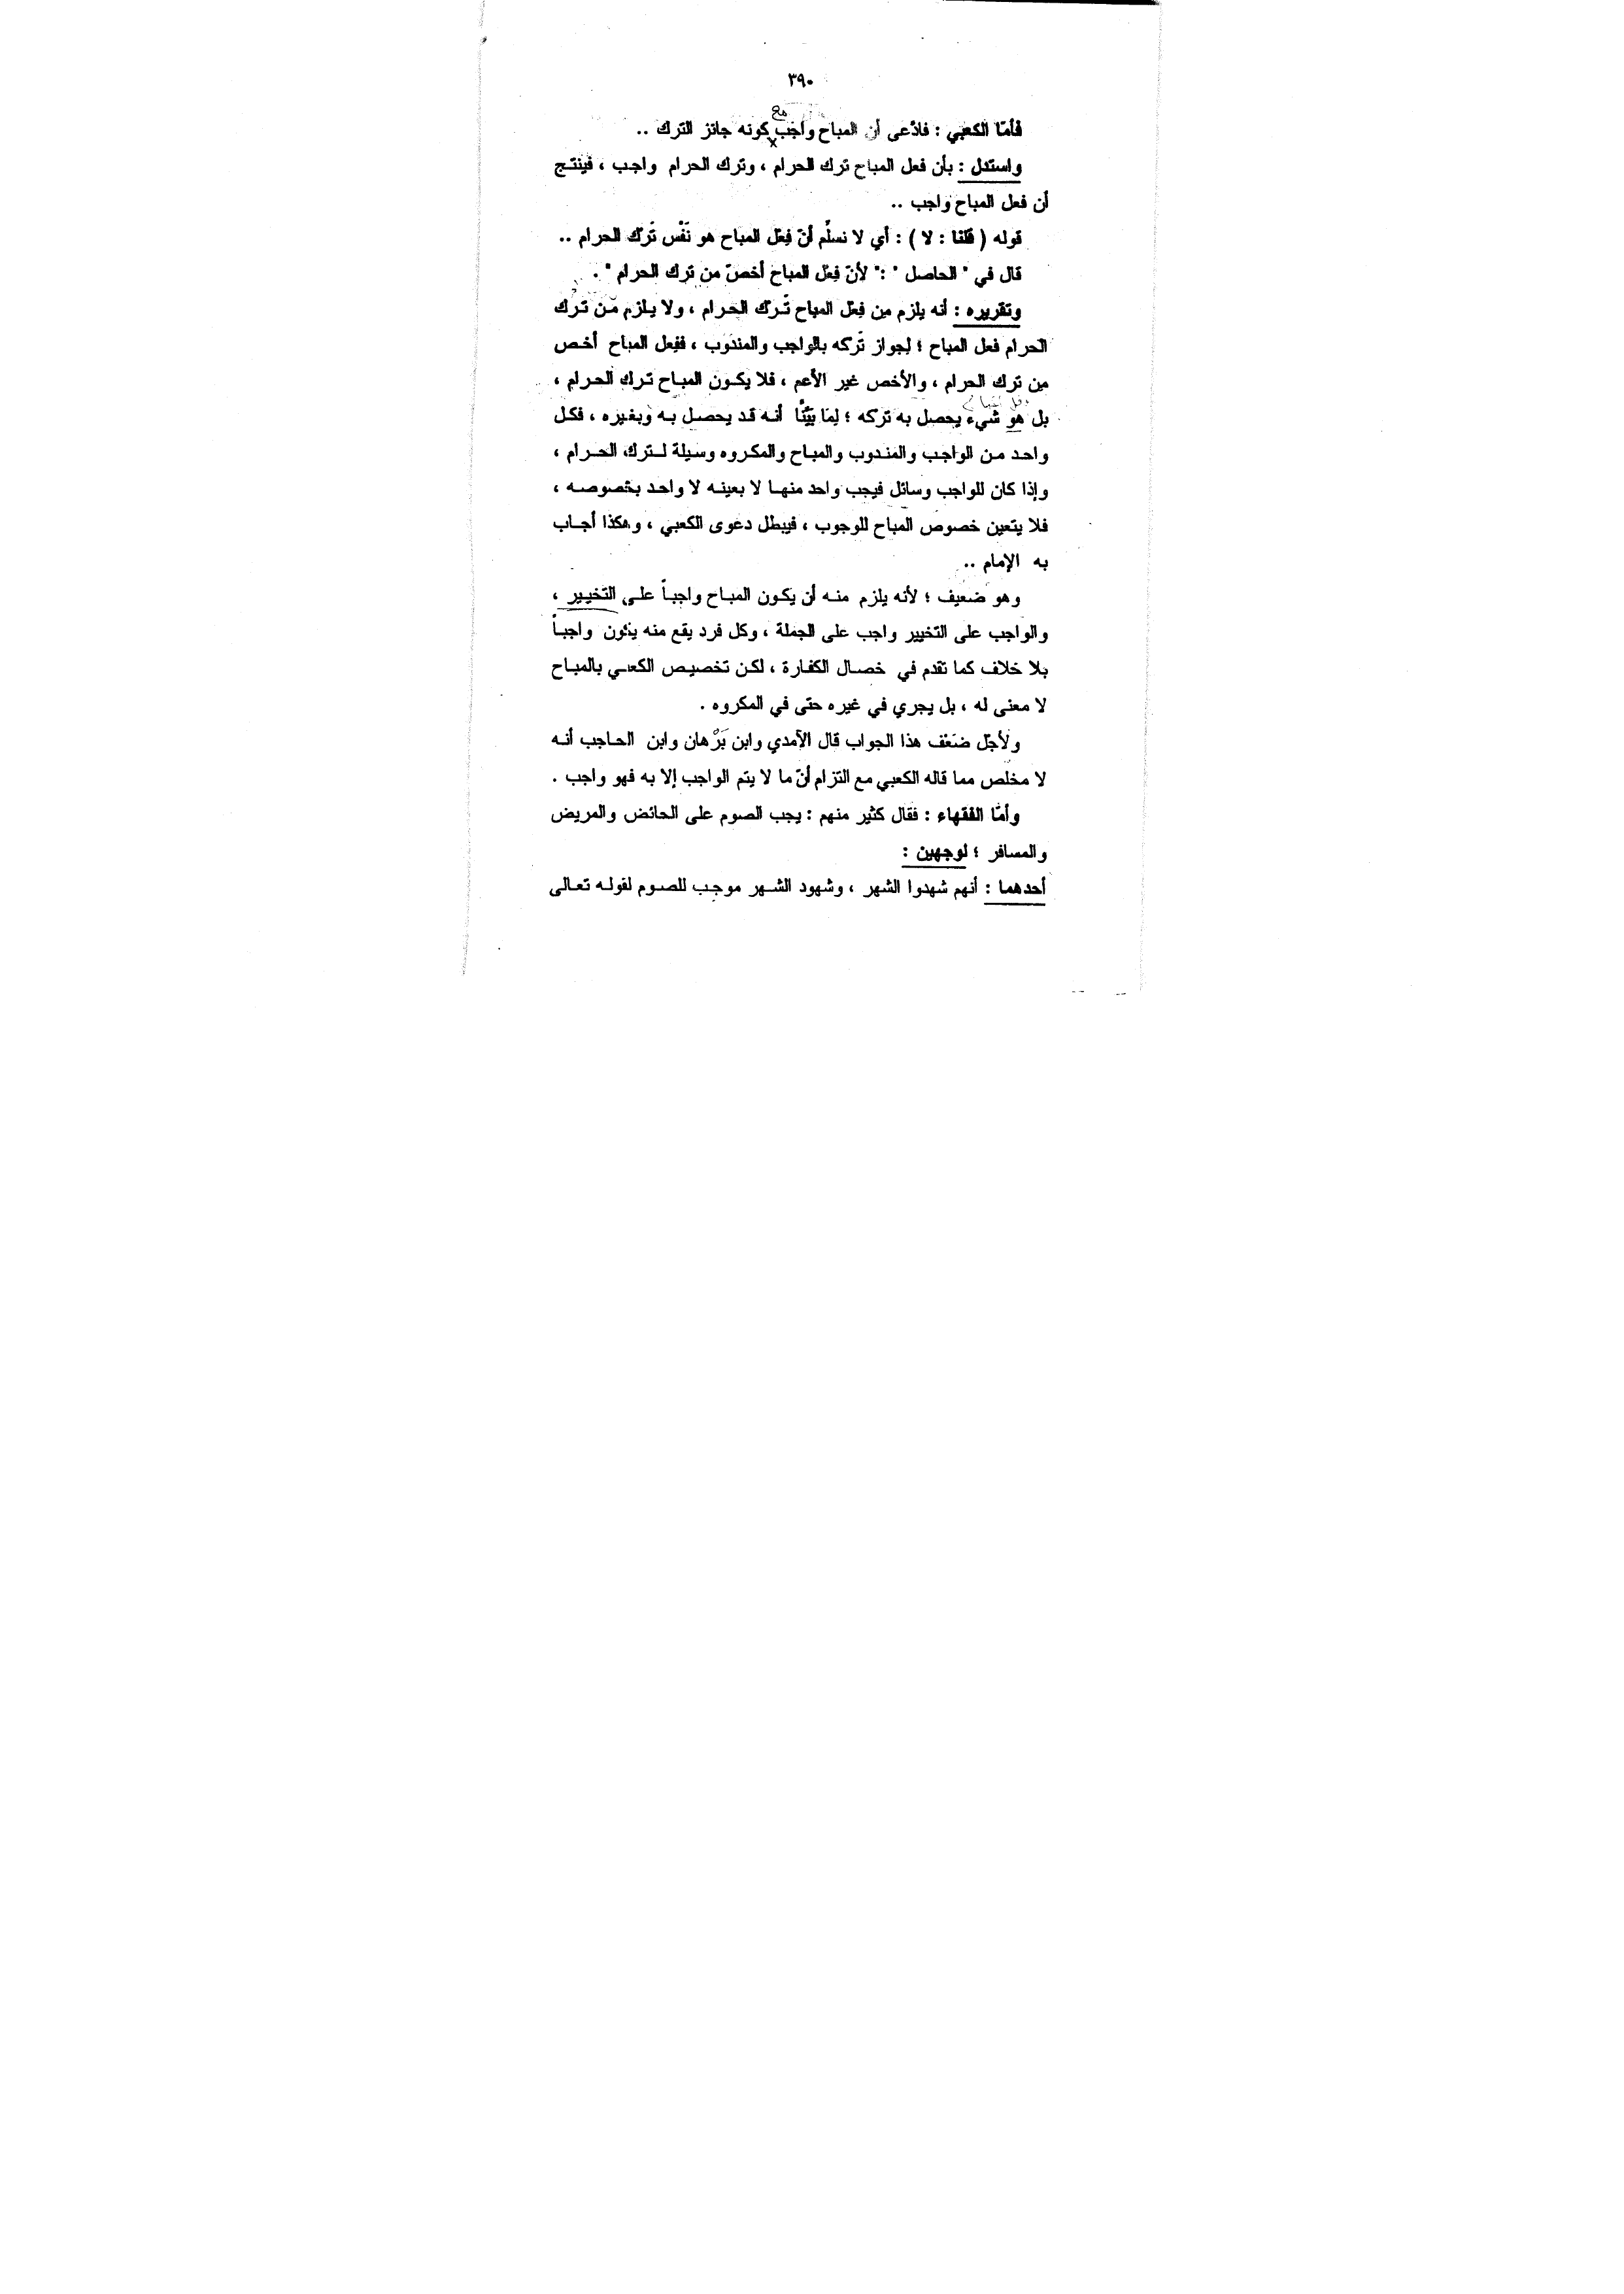 ٣٩٠
مع
فأمّا الكعبي : فادّعى أن المباح واجب كونه جائز الترك ..
واستدل : بأن فعل المباح ترك الحرام ، وترك الحرام واجب ، فينتج
أن فعل المباح واجب ..
قوله ( قلنا : لا ) : أي لا نسلّم أنّ فِعْل المباح هو نَفْس تَرْك الحرام ..
قال في " الحاصل " : " لأنّ فِعْل المباح أخصّ من ترك الحرام " .
وتقريره : أنه يلزم من فِعْل المباح تَرْك الحرام ، ولا يلزم مِن تَرْك
الحرام فعل المباح ؛ لجواز تَرْكه بالواجب والمندوب ، ففِعل المباح أخص
من ترك الحرام ، والأخص غير الأعم ، فلا يكون المباح ترك الحرام ،
بل هو شيء يحصل به تركه ؛ لِمَا بَيَّنَّا أنه قد يحصل به وبغيره ، فكل
واحد من الواجب والمندوب والمباح والمكروه وسيلة لترك الحرام ،
وإذا كان للواجب وسائل فيجب واحد منها لا بعينه لا واحد بخصوصه ،
فلا يتعين خصوص المباح للوجوب ، فيبطل دعوى الكعبي ، وهكذا أجاب
به الإمام ..
وهو ضعيف ؛ لأنه يلزم منه أن يكون المباح واجباً على التخيير ،
والواجب على التخيير واجب على الجملة ، وكل فرد يقع منه يكون واجباً
بلا خلاف كما تقدم في خصال الكفارة ، لكن تخصيص الكعبي بالمباح
لا معنى له ، بل يجري في غيره حتى في المكروه .
ولأجْل ضَعْف هذا الجواب قال الآمدي وابن بَرْهان وابن الحاجب أنه
لا مخلص مما قاله الكعبي مع التزام أنّ ما لا يتم الواجب إلا به فهو واجب .
وأمّا الفقهاء : فقال كثير منهم : يجب الصوم على الحائض والمريض
والمسافر ؛ لوجهين :
أحدهما : أنهم شهدوا الشهر ، وشهود الشهر موجب للصوم لقوله تعالى